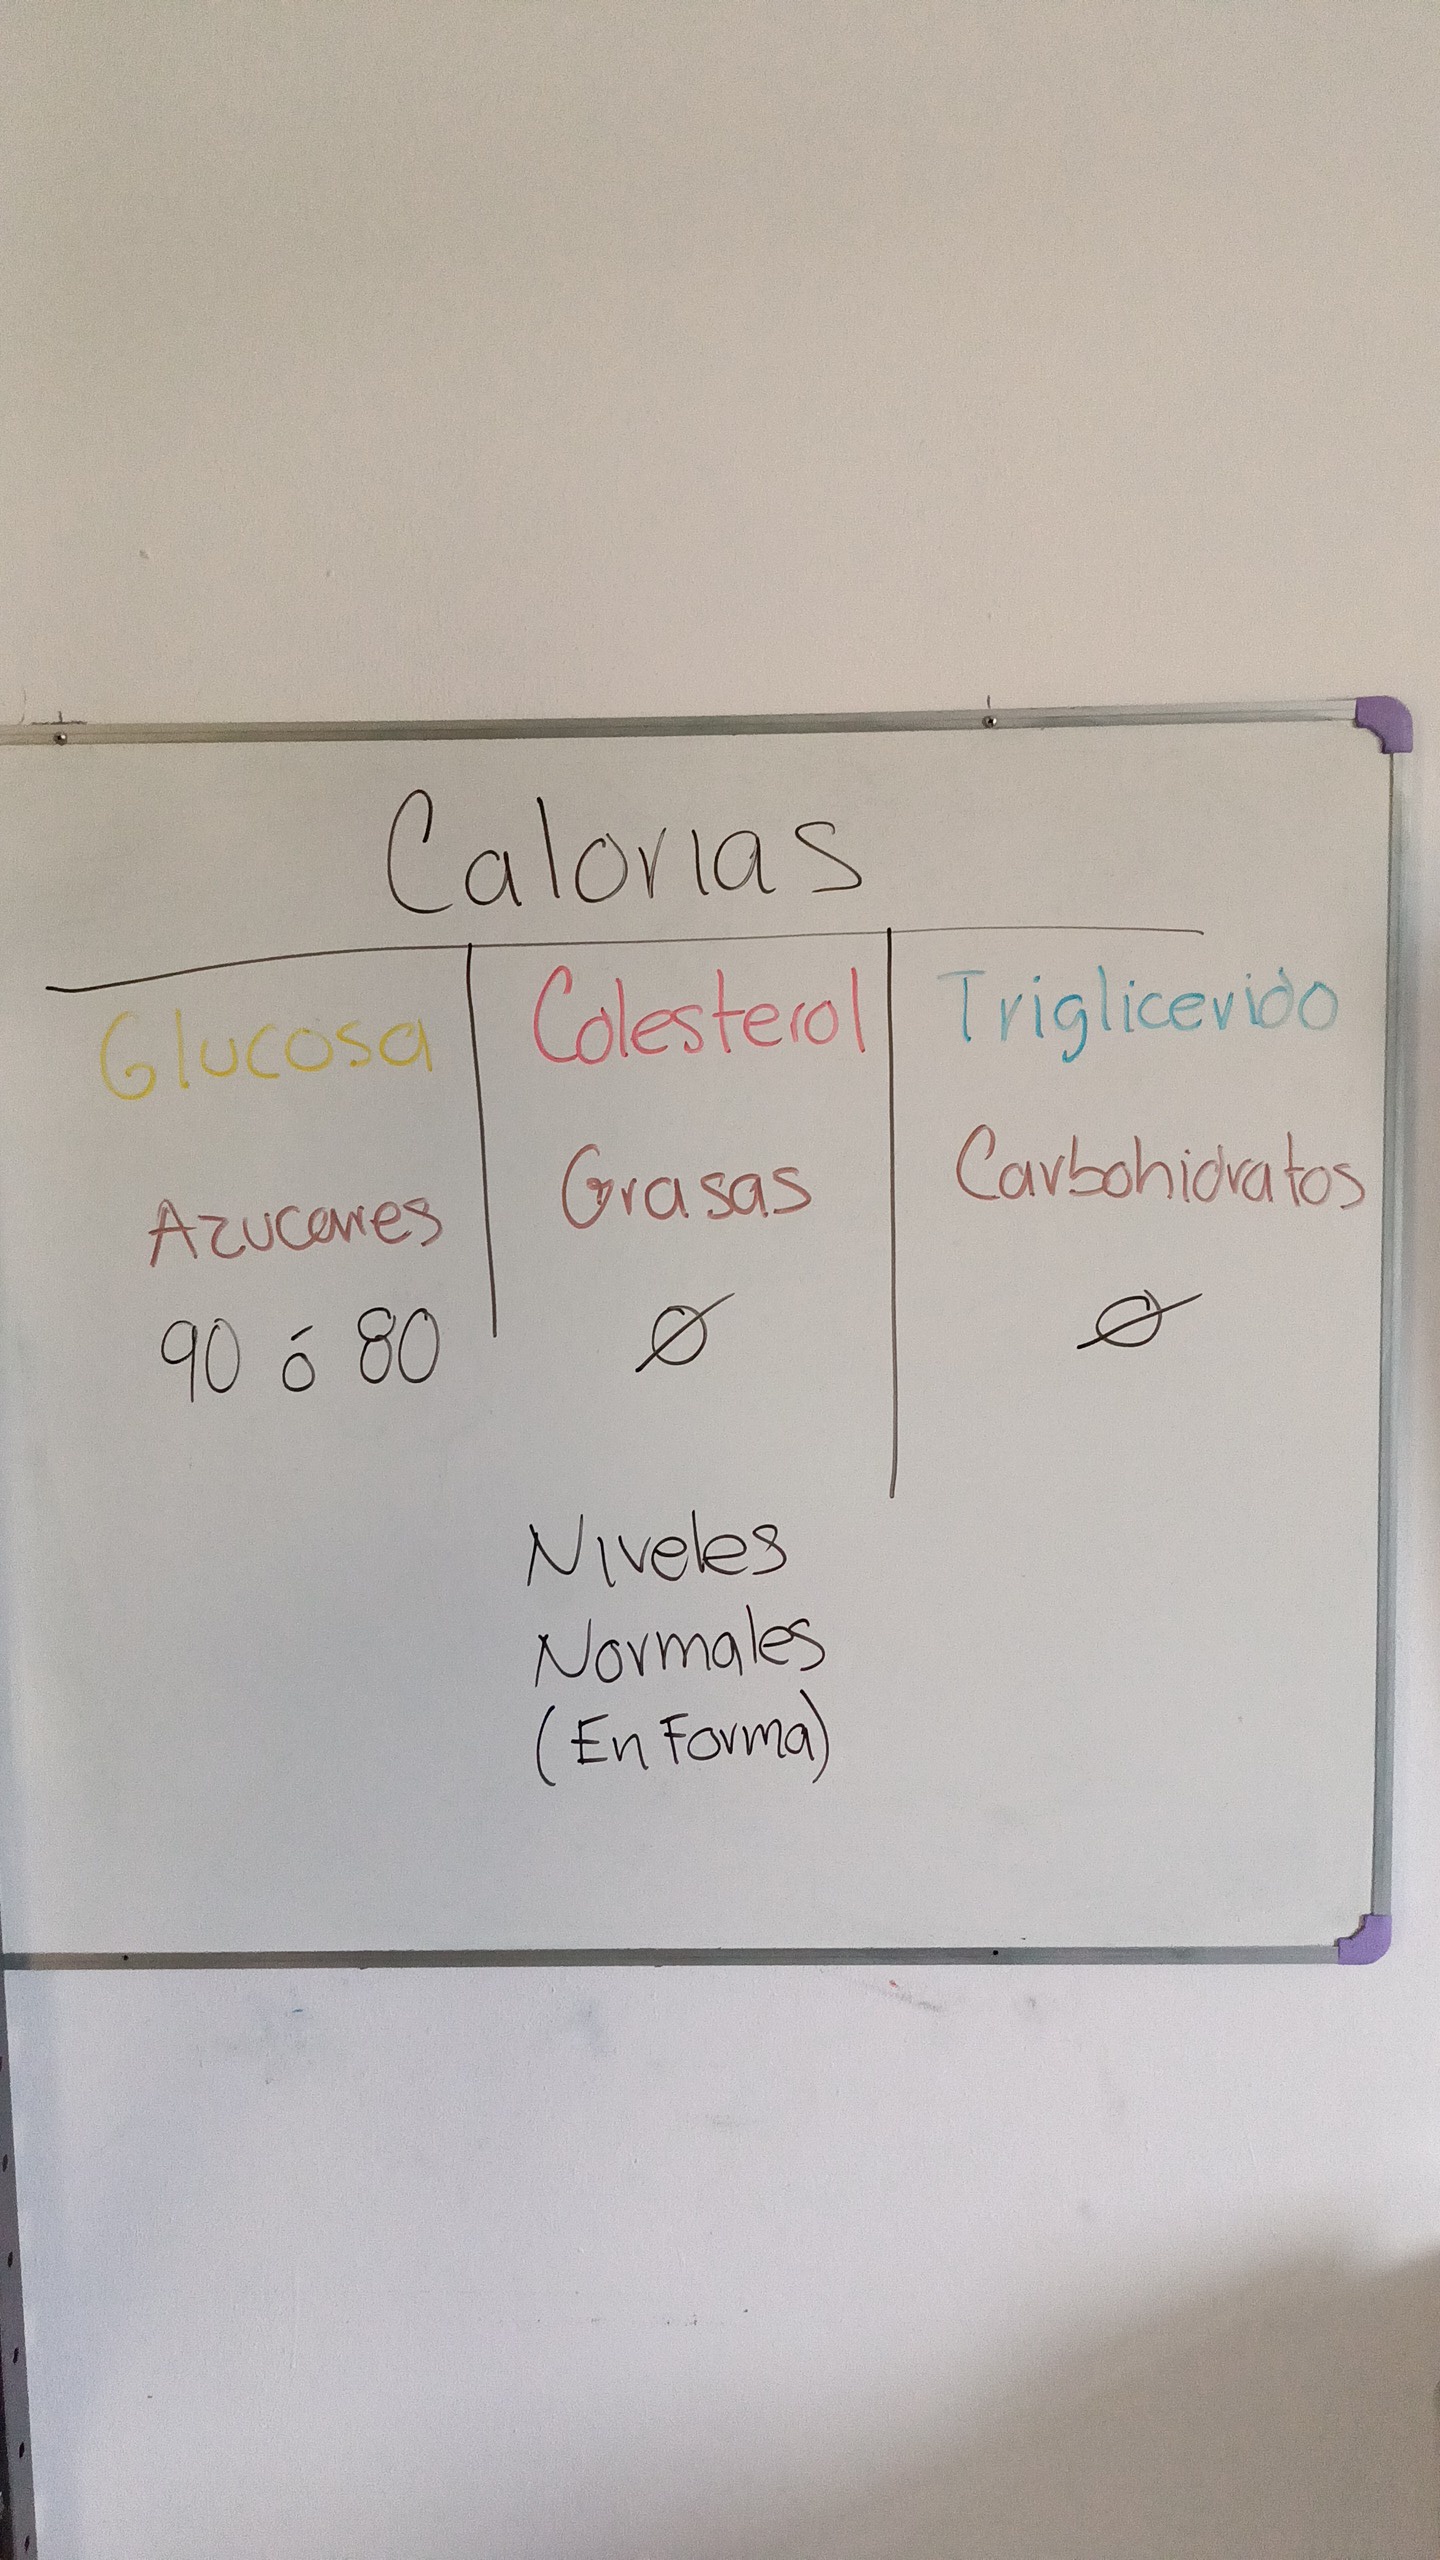 Calorias
Glucosa Colesterol Triglicerido
Azucares Grasas Carbohidratos
90 ó 80 Ø Ø
Niveles
Normales
(En Forma)